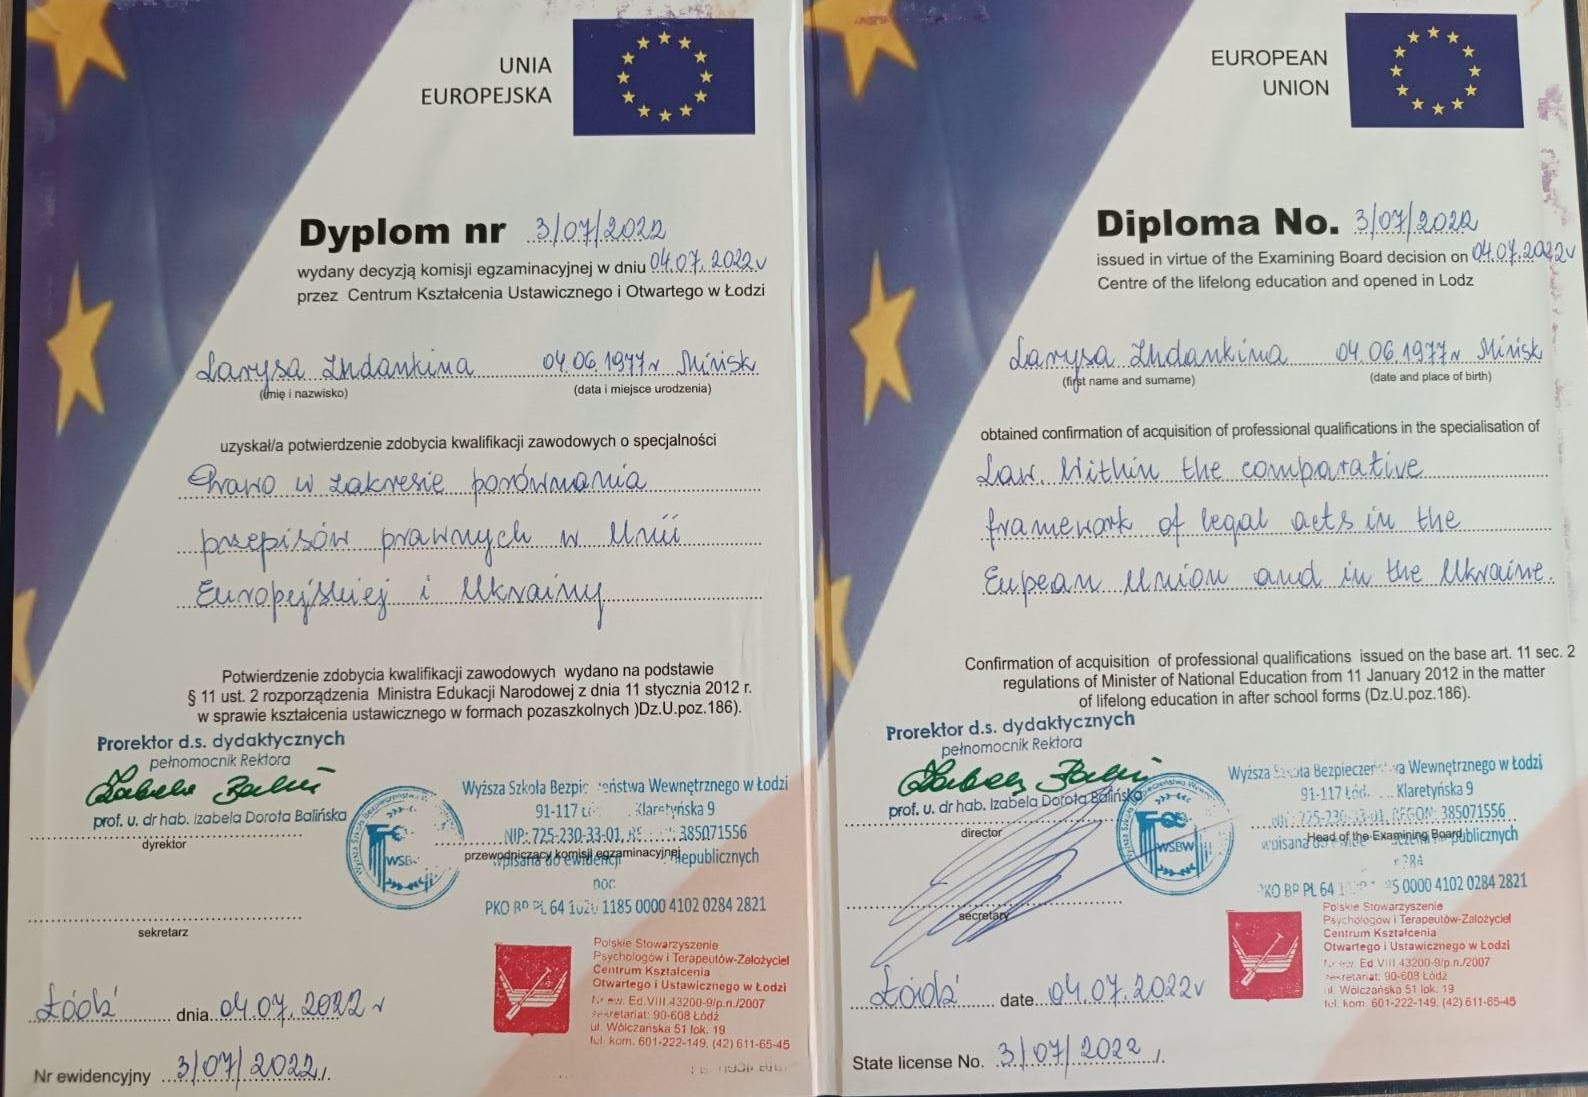 UNIA
EUROPEJSKA
Dyplom nr 3/07/2022
wydany decyzją komisji egzaminacyjnej w dniu 04.07.2022r
przez Centrum Kształcenia Ustawicznego i Otwartego w Łodzi
Larysa Zhdankina 04.06.1977r Mińsk
(imię i nazwisko) (data i miejsce urodzenia)
uzyskał/a potwierdzenie zdobycia kwalifikacji zawodowych o specjalności
Prawo w zakresie porównania
przepisów prawnych w Unii
Europejskiej i Ukrainy
Potwierdzenie zdobycia kwalifikacji zawodowych wydano na podstawie
§ 11 ust. 2 rozporządzenia Ministra Edukacji Narodowej z dnia 11 stycznia 2012 r.
w sprawie kształcenia ustawicznego w formach pozaszkolnych )Dz.U.poz.186).
Prorektor d.s. dydaktycznych
pełnomocnik Rektora
prof. u. dr hab. Izabela Dorota Balińska
dyrektor
Wyższa Szkoła Bezpieczeństwa Wewnętrznego w Łodzi
91-117 Klaretyńska 9
NIP: 725-230-33-01, 385071556
przewodniczący komisji egzaminacyjnej
wpisana do ewidencji niepublicznych
PKO BP PL 64 1020 1185 0000 4102 0284 2821
WSB
sekretarz
Polskie Stowarzyszenie
Psychologów i Terapeutów-Założyciel
Centrum Kształcenia
Otwartego i Ustawicznego w Łodzi
Nr ew. Ed.VIII.43200-9/p.n./2007
sekretariat: 90-608 Łódź
ul. Wólczańska 51 lok. 19
tel. kom. 601-222-149, (42) 611-65-45
Łódź dnia 04.07.2022r
Nr ewidencyjny 3/07/2022r.
EUROPEAN
UNION
Diploma No. 3/07/2022
issued in virtue of the Examining Board decision on 04.07.2022r
Centre of the lifelong education and opened in Lodz
Larysa Zhdankina 04.06.1977r Mińsk
(first name and surname) (date and place of birth)
obtained confirmation of acquisition of professional qualifications in the specialisation of
Law. Within the comparative
framework of legal acts in the
Eupean Union and in the Ukraine.
Confirmation of acquisition of professional qualifications issued on the base art. 11 sec. 2
regulations of Minister of National Education from 11 January 2012 in the matter
of lifelong education in after school forms (Dz.U.poz.186).
Prorektor d.s. dydaktycznych
pełnomocnik Rektora
prof. u. dr hab. Izabela Dorota Balińska
director
Wyższa Szkoła Bezpieczeństwa Wewnętrznego w Łodzi
91-117 Łódź Klaretyńska 9
NIP: 725-230-33-01, REGON: 385071556
Head of the Examining Board
wpisana do niepublicznych
PKO BP PL 64 0000 4102 0284 2821
WSBW
secretary
Polskie Stowarzyszenie
Psychologów i Terapeutów-Założyciel
Centrum Kształcenia
Otwartego i Ustawicznego w Łodzi
Nr ew. Ed.VIII.43200-9/p.n./2007
sekretariat: 90-608 Łódź
ul. Wólczańska 51 lok. 19
tel. kom. 601-222-149, (42) 611-65-45
Łódź date 04.07.2022r
State license No. 3/07/2022r.